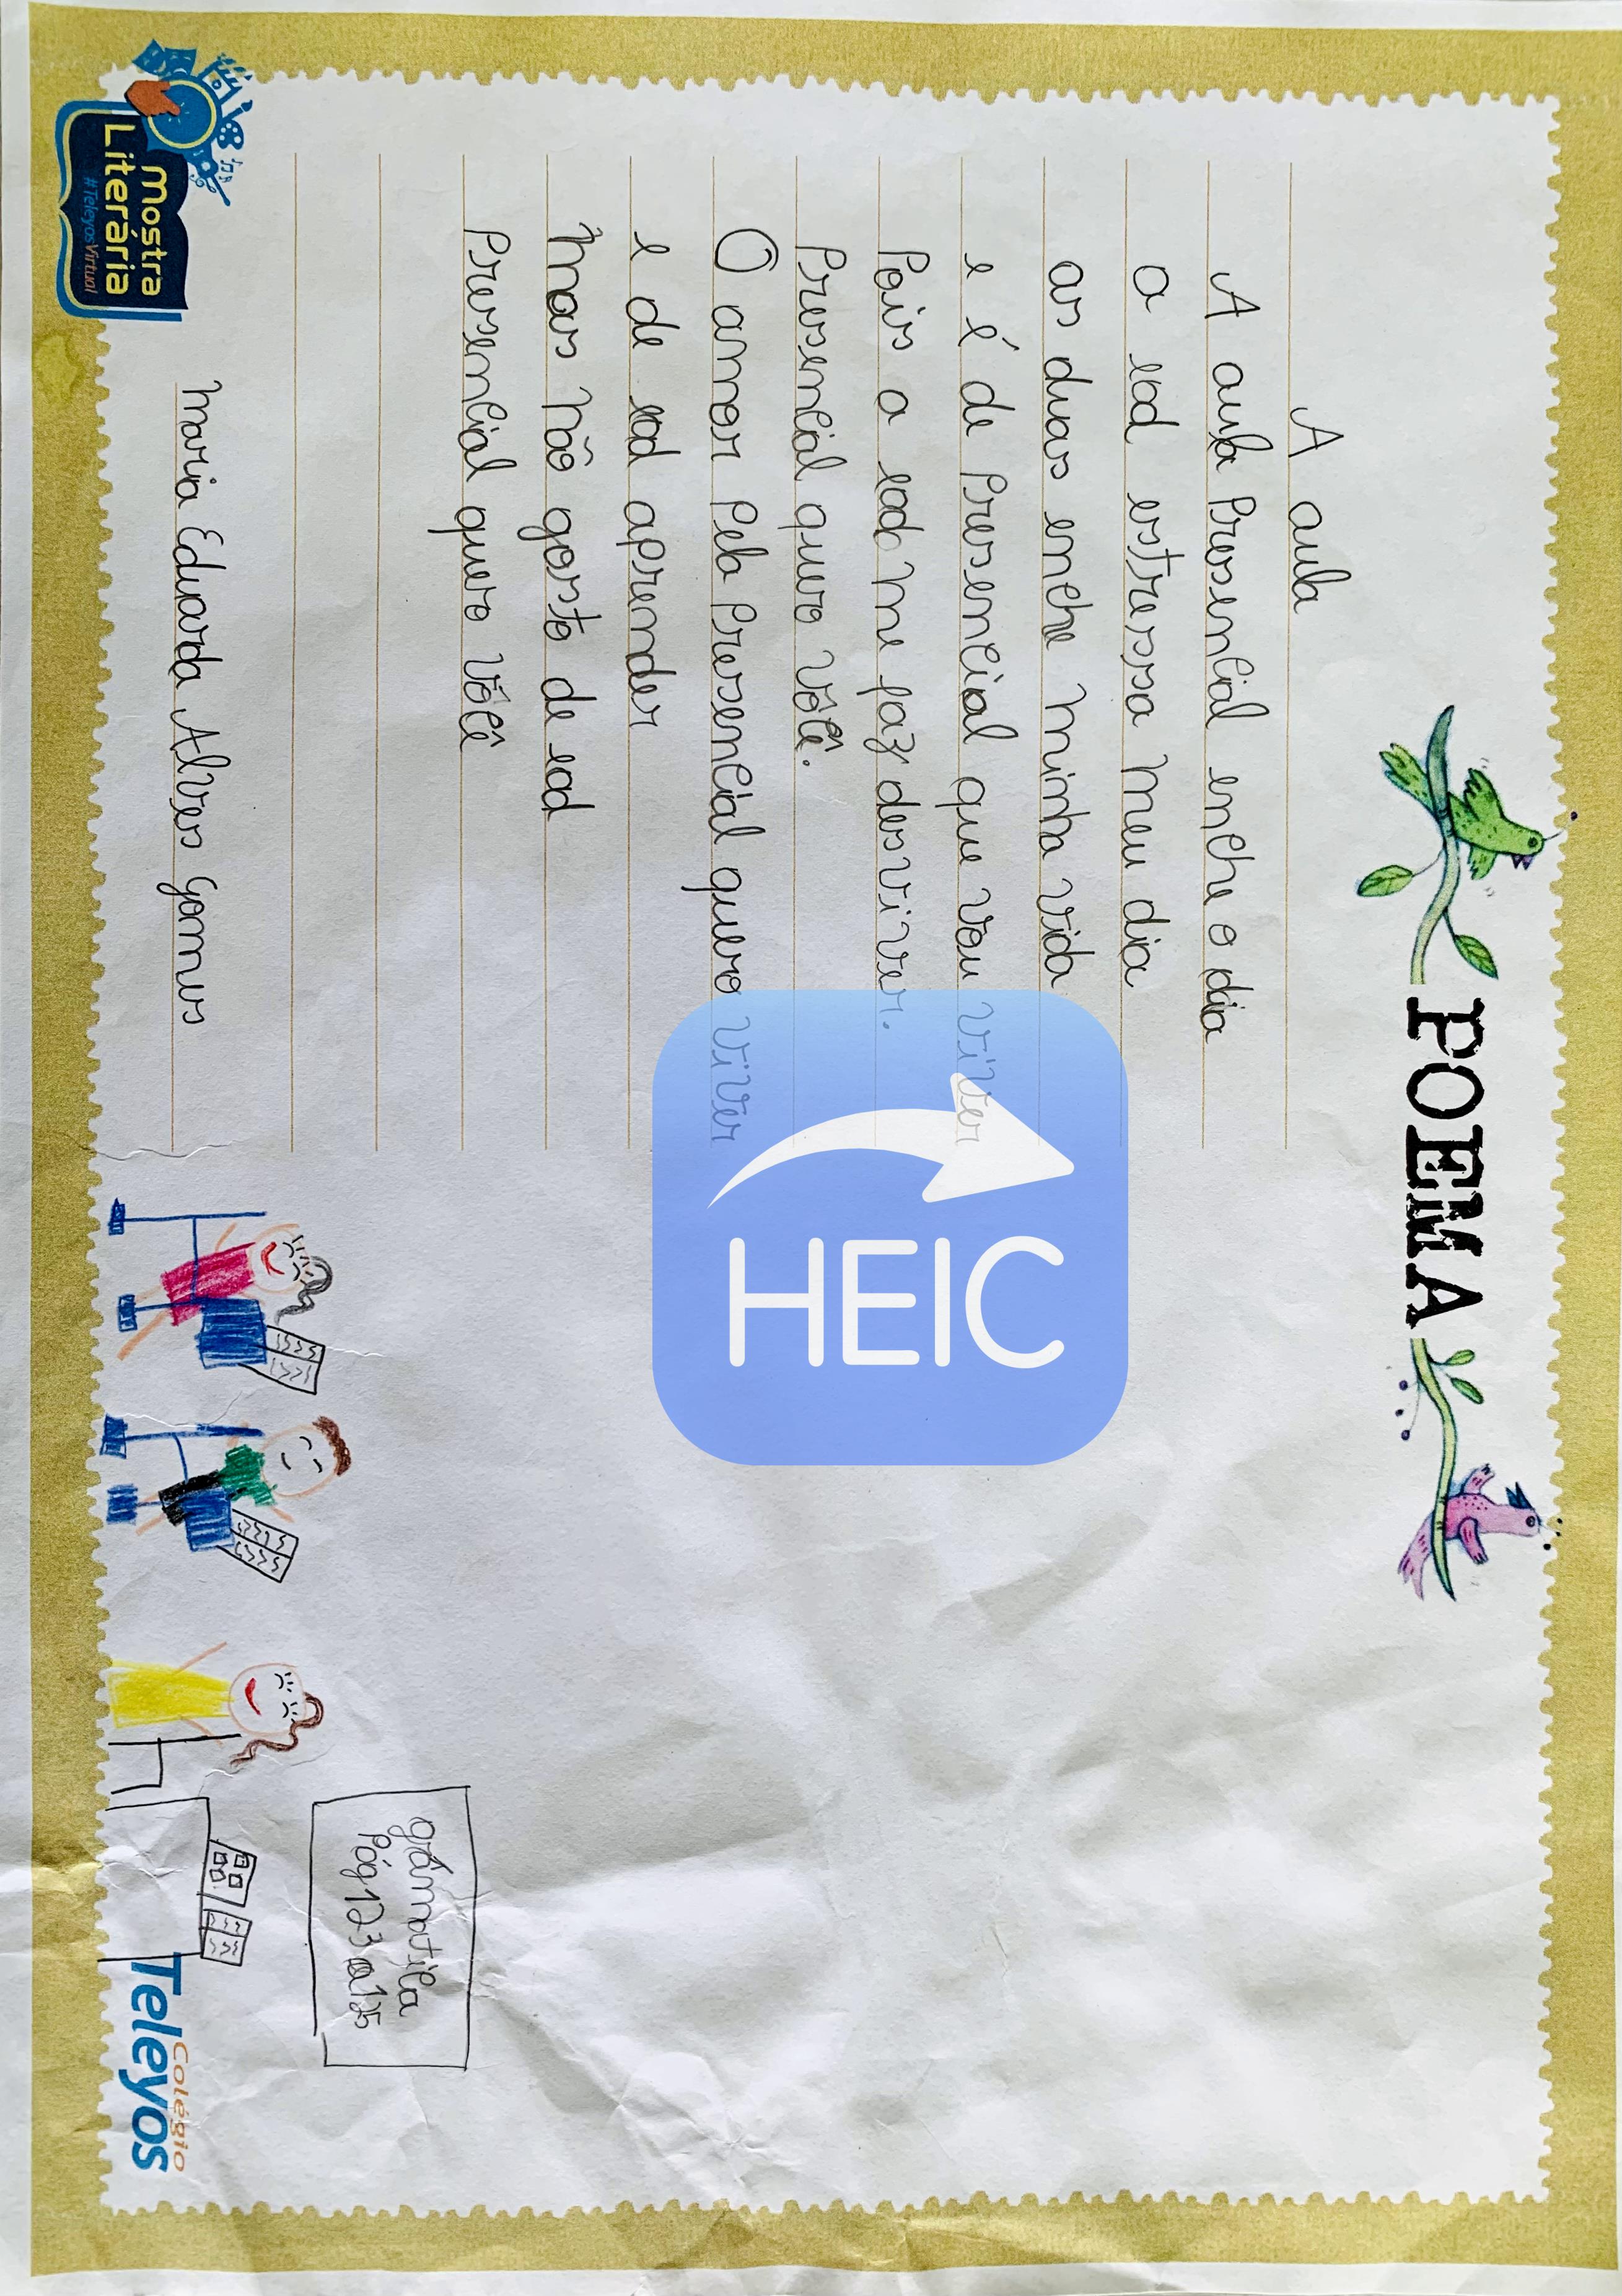 POEMA
A aula
A aula Presencial enche o dia
a ead estressa meu dia
as duas enche minha vida
e é de Presencial que vou viver
Pois a ead me faz desviver.
Presencial quero você.
O amor Pela Presencial quero viver
e de ead aprender
Mas não gosto de ead
Presencial quero você
Maria Eduarda Alves Gomes
Mostra
Literária
#TeleyosVirtual
HEIC
gramatica
Pág 123 a 125
Colégio
Teleyos